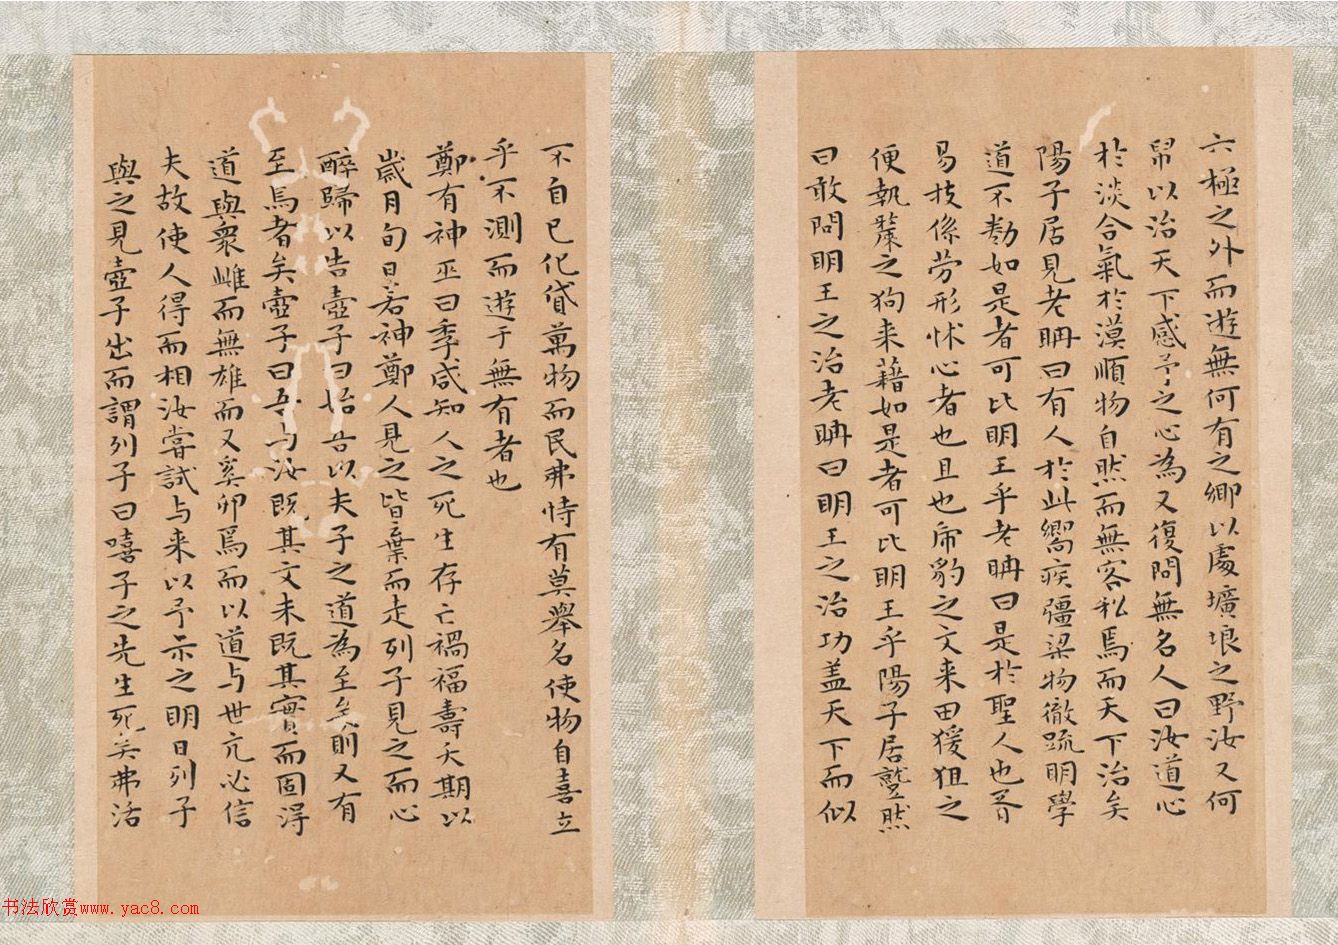 六極之外而遊無何有之鄉以處壙埌之野汝又何
帠以治天下感予之心為又復問無名人曰汝道心
於淡合氣於漠順物自然而無容私焉而天下治矣
陽子居見老聃曰有人於此嚮疾彊梁物徹疏明學
道不勌如是者可比明王乎老聃曰是於聖人也胥
易技係勞形怵心者也且也虎豹之文来田猨狙之
便執斄之狗来藉如是者可比明王乎陽子居蹵然
曰敢問明王之治老聃曰明王之治功盖天下而似
不自已化貸萬物而民弗恃有莫舉名使物自喜立
乎不測而遊于無有者也
鄭有神巫曰季咸知人之死生存亡禍福壽夭期以
歲月旬日若神鄭人見之皆棄而走列子見之而心
醉歸以告壺子曰始吾以夫子之道為至矣則又有
至焉者矣壺子曰吾与汝既其文未既其實而固得
道與衆雌而無雄而又奚卵焉而以道与世亢必信
夫故使人得而相汝嘗試与来以予示之明日列子
與之見壺子出而謂列子曰嘻子之先生死矣弗活
书法欣赏www.yac8.com